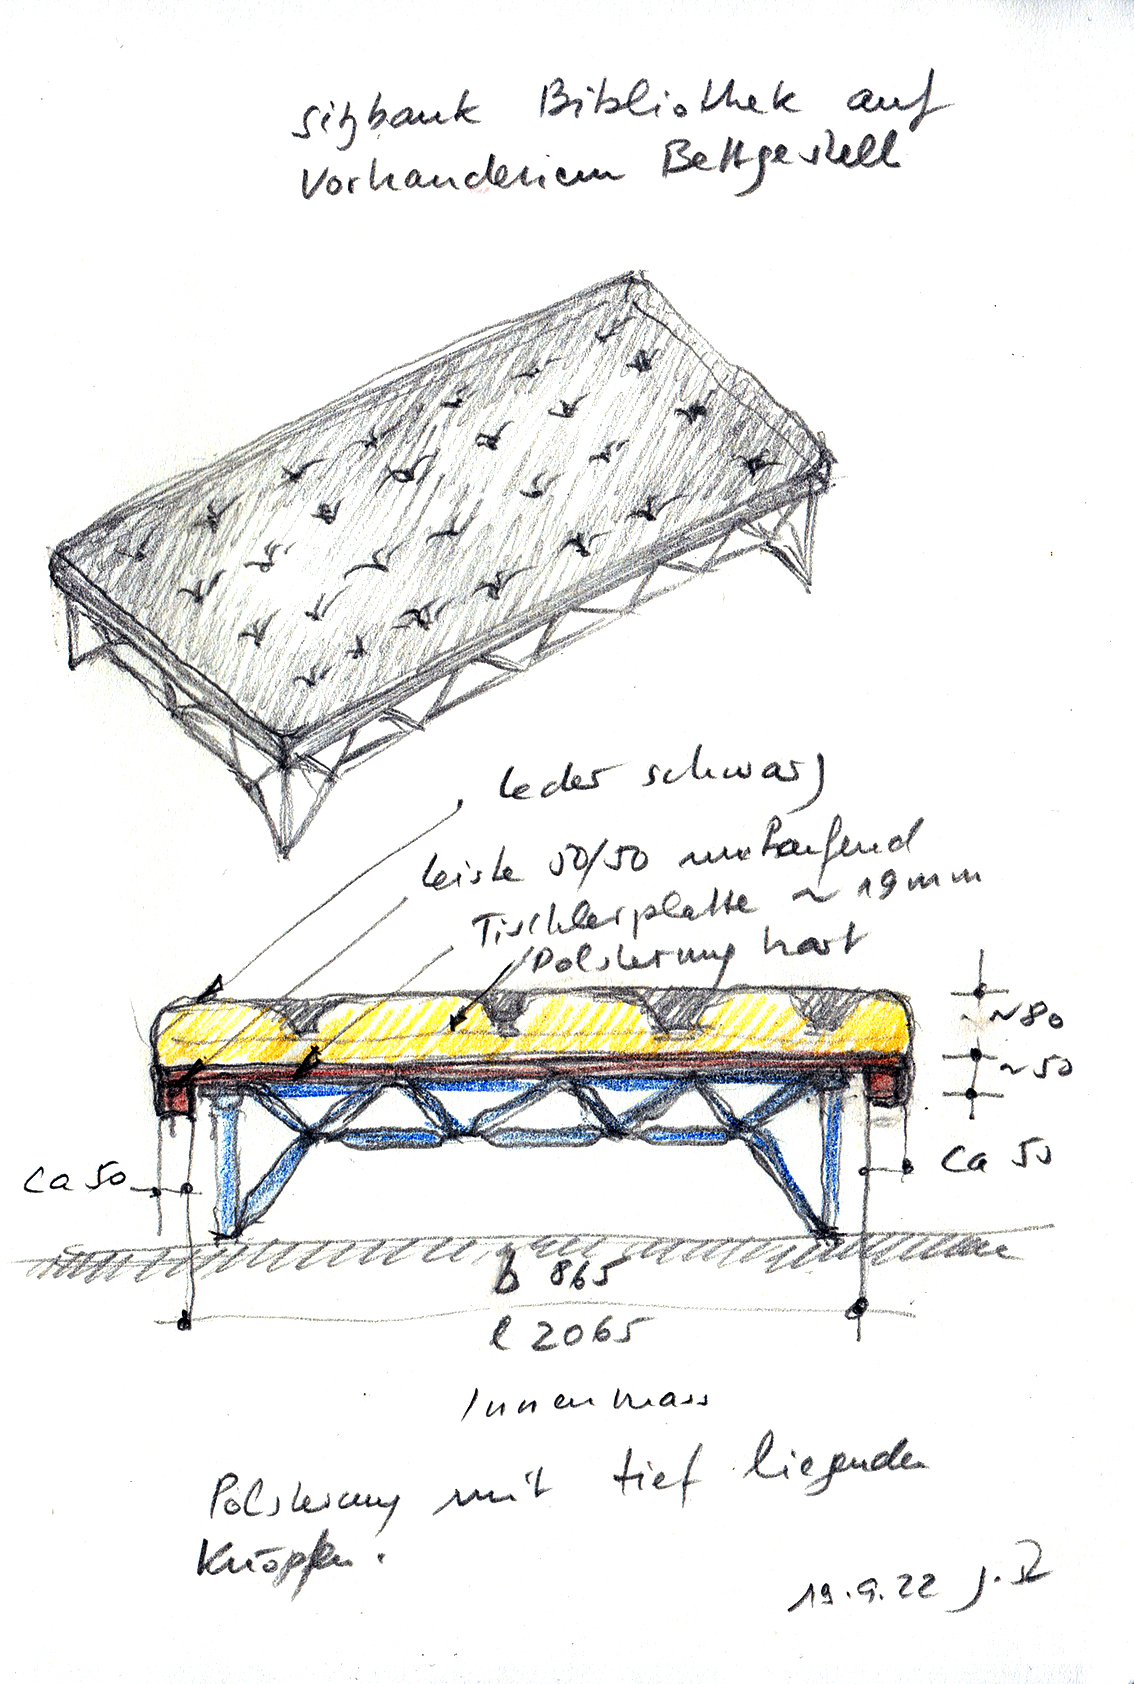 Sitzbank Bibliothek auf
vorhandenem Bettgestell
Leder schwarz
Leiste 50/50 umlaufend
Tischlerplatte ~ 19mm
Polsterung hart
~80
~50
ca 50
ca 50
b 865
l 2065
Innenmass
Polsterung mit tief liegenden
Knöpfen.
19.9.22 J.